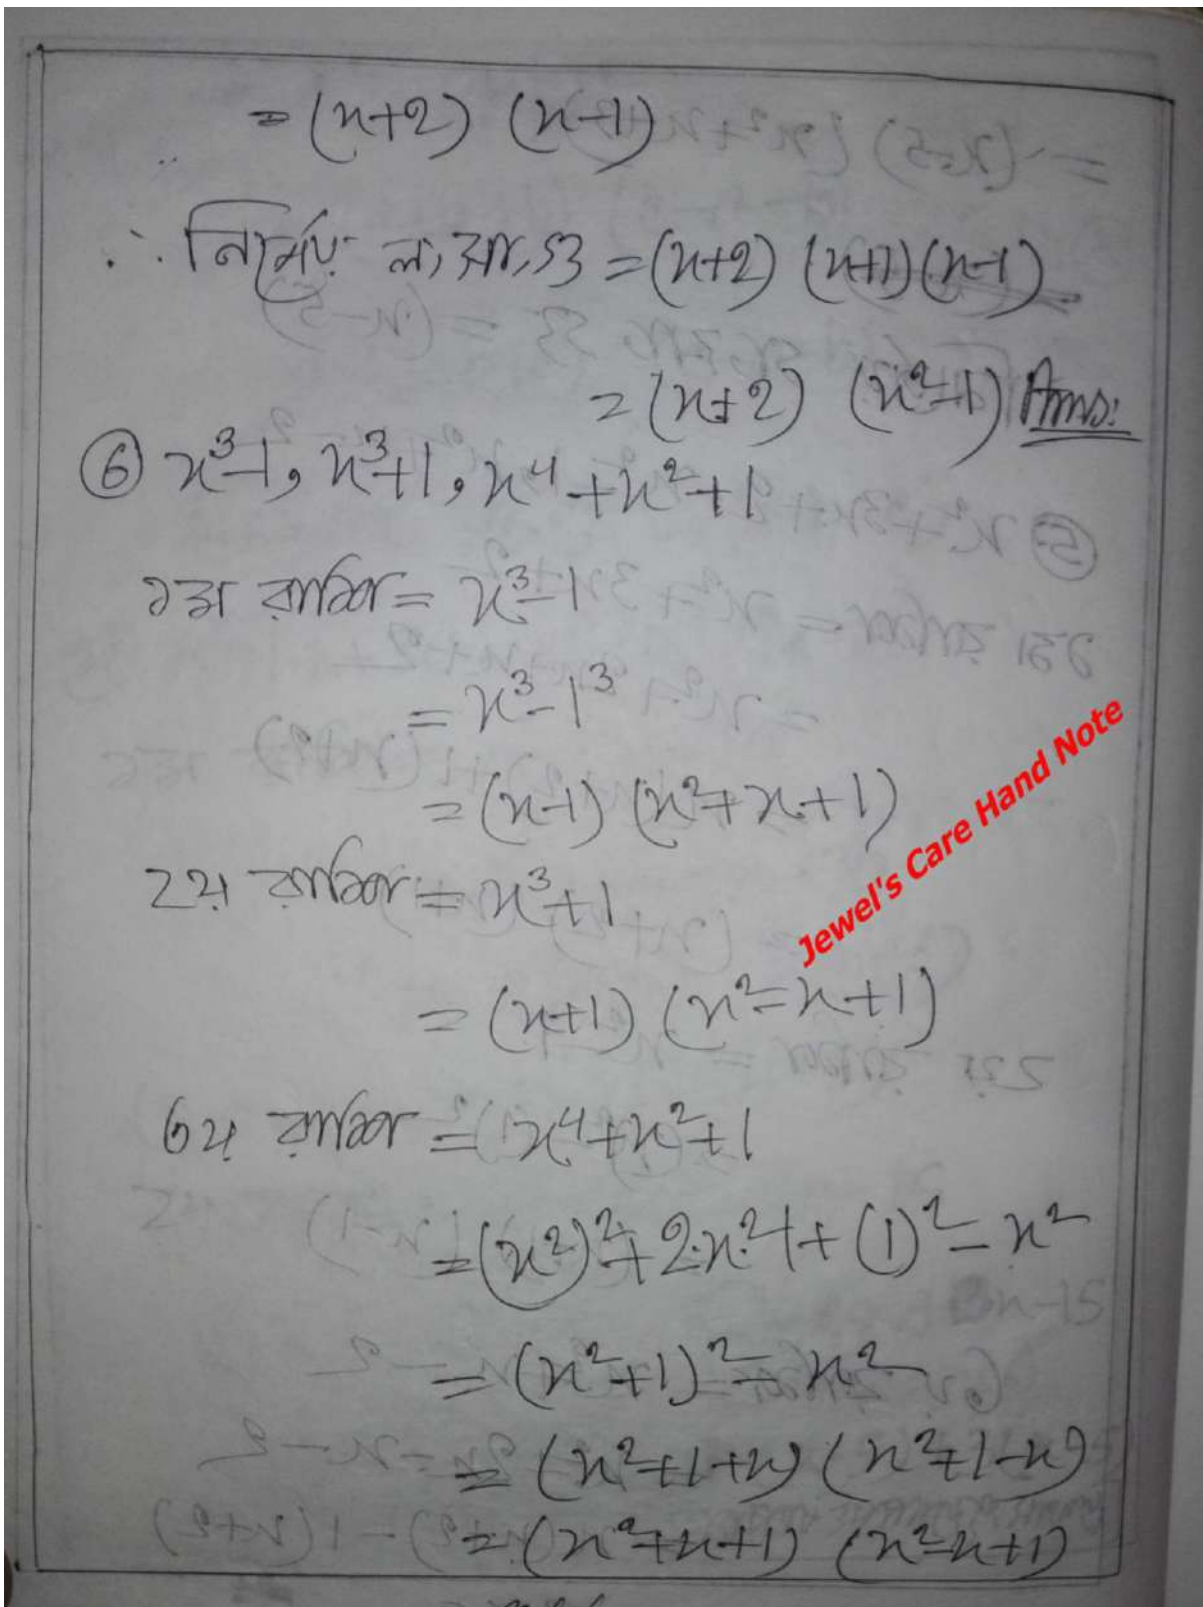 = (x+2) (x-1)
∴ নির্ণেয় ল,সা,গু = (x+2) (x+1) (x-1)
= (x+2) (x²-1) Ans:
⑥ x³-1, x³+1, x⁴+x²+1
১ম রাশি = x³-1
= x³-1³
= (x-1) (x²+x+1)
২য় রাশি = x³+1
= (x+1) (x²-x+1)
৩য় রাশি = x⁴+x²+1
= (x²)²+2.x².1+(1)²-x²
= (x²+1)²-x²
= (x²+1+x) (x²+1-x)
= (x²+x+1) (x²-x+1)
Jewel's Care Hand Note